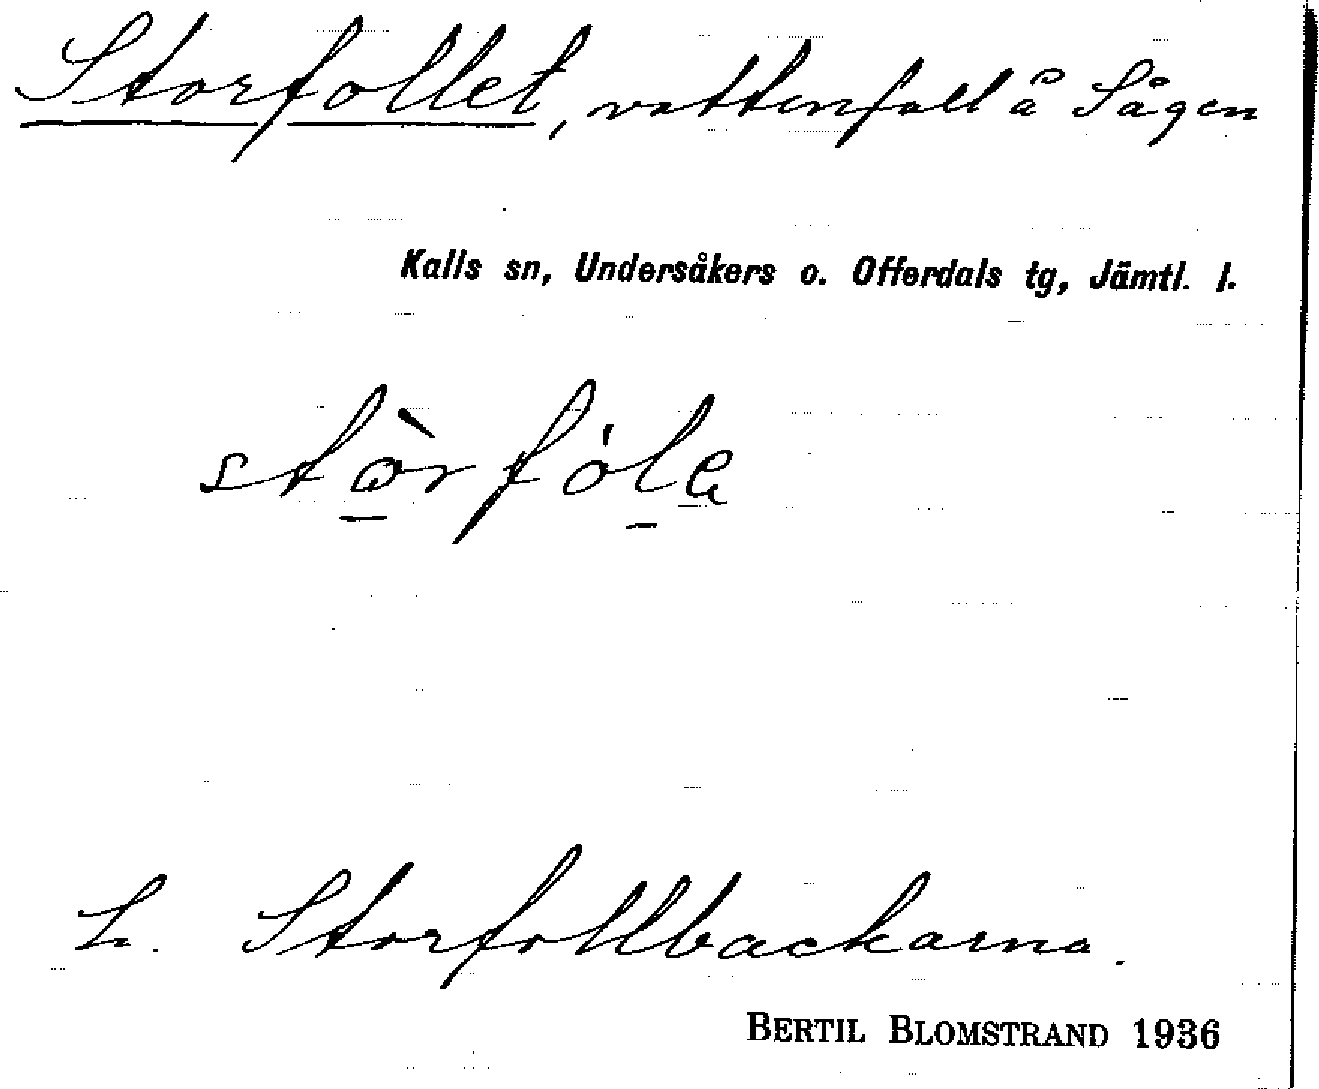 Storfollet, vattenfall å Sågen
Kalls sn, Undersåkers o. Offerdals tg, Jämtl. l.
stòrfólə
L. Storfollbackarna.
BERTIL BLOMSTRAND 1936